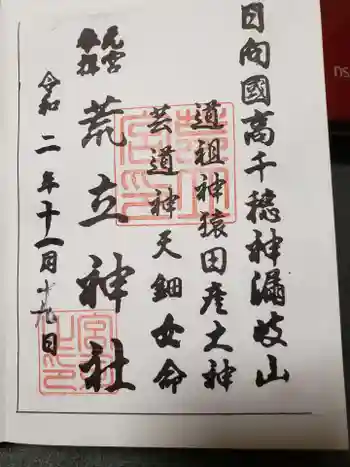 日向國高千穂神漏岐山
道祖神猿田彦大神
芸道神天鈿女命
元宮
奉拝
荒立神社
令和二年十一月廿九日